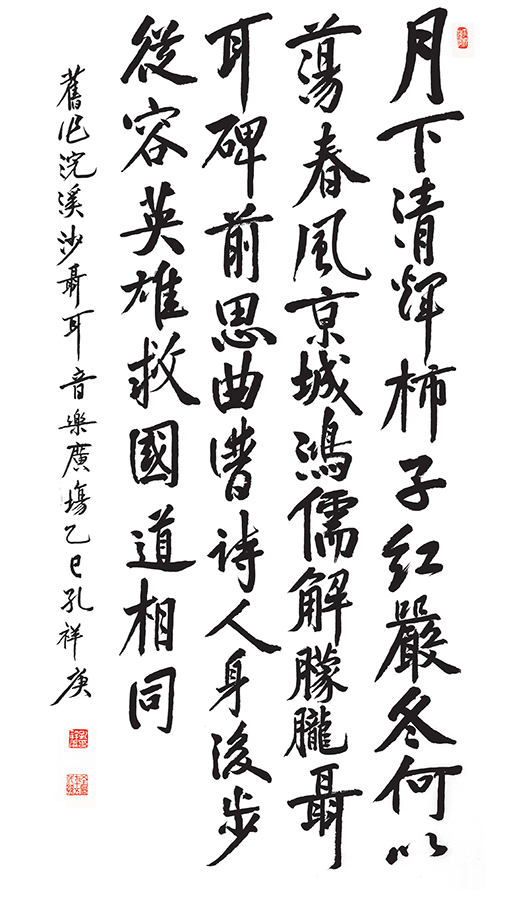 月下清輝柿子紅嚴冬何以
蕩春風京城鴻儒解朦朧聶
耳碑前思曲譜詩人身後步
從容英雄救國道相同
舊作浣溪沙聶耳音樂廣塲乙巳孔祥庚